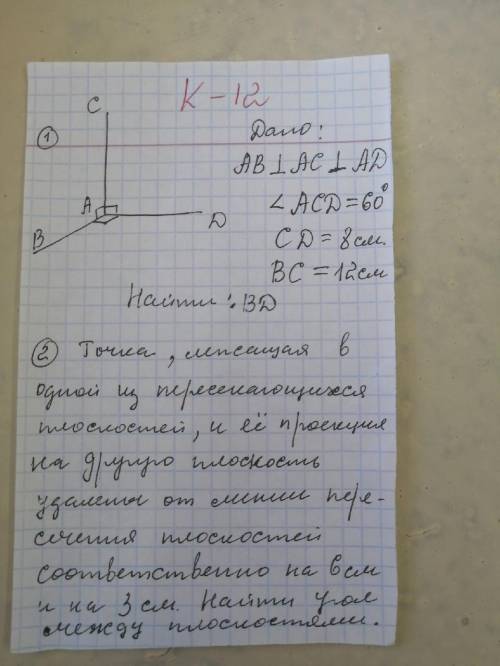 К-12
С
① Дано:
AB⊥AC⊥AD
A
∠ACD=60°
D
B
CD=8см.
BC=12см
Найти: BD
② Точка, лежащая в
одной из пересекающихся
плоскостей, и её проекция
на другую плоскость
удалены от линии пере-
сечения плоскостей
соответственно на 6см
и на 3см. Найти угол
между плоскостями.